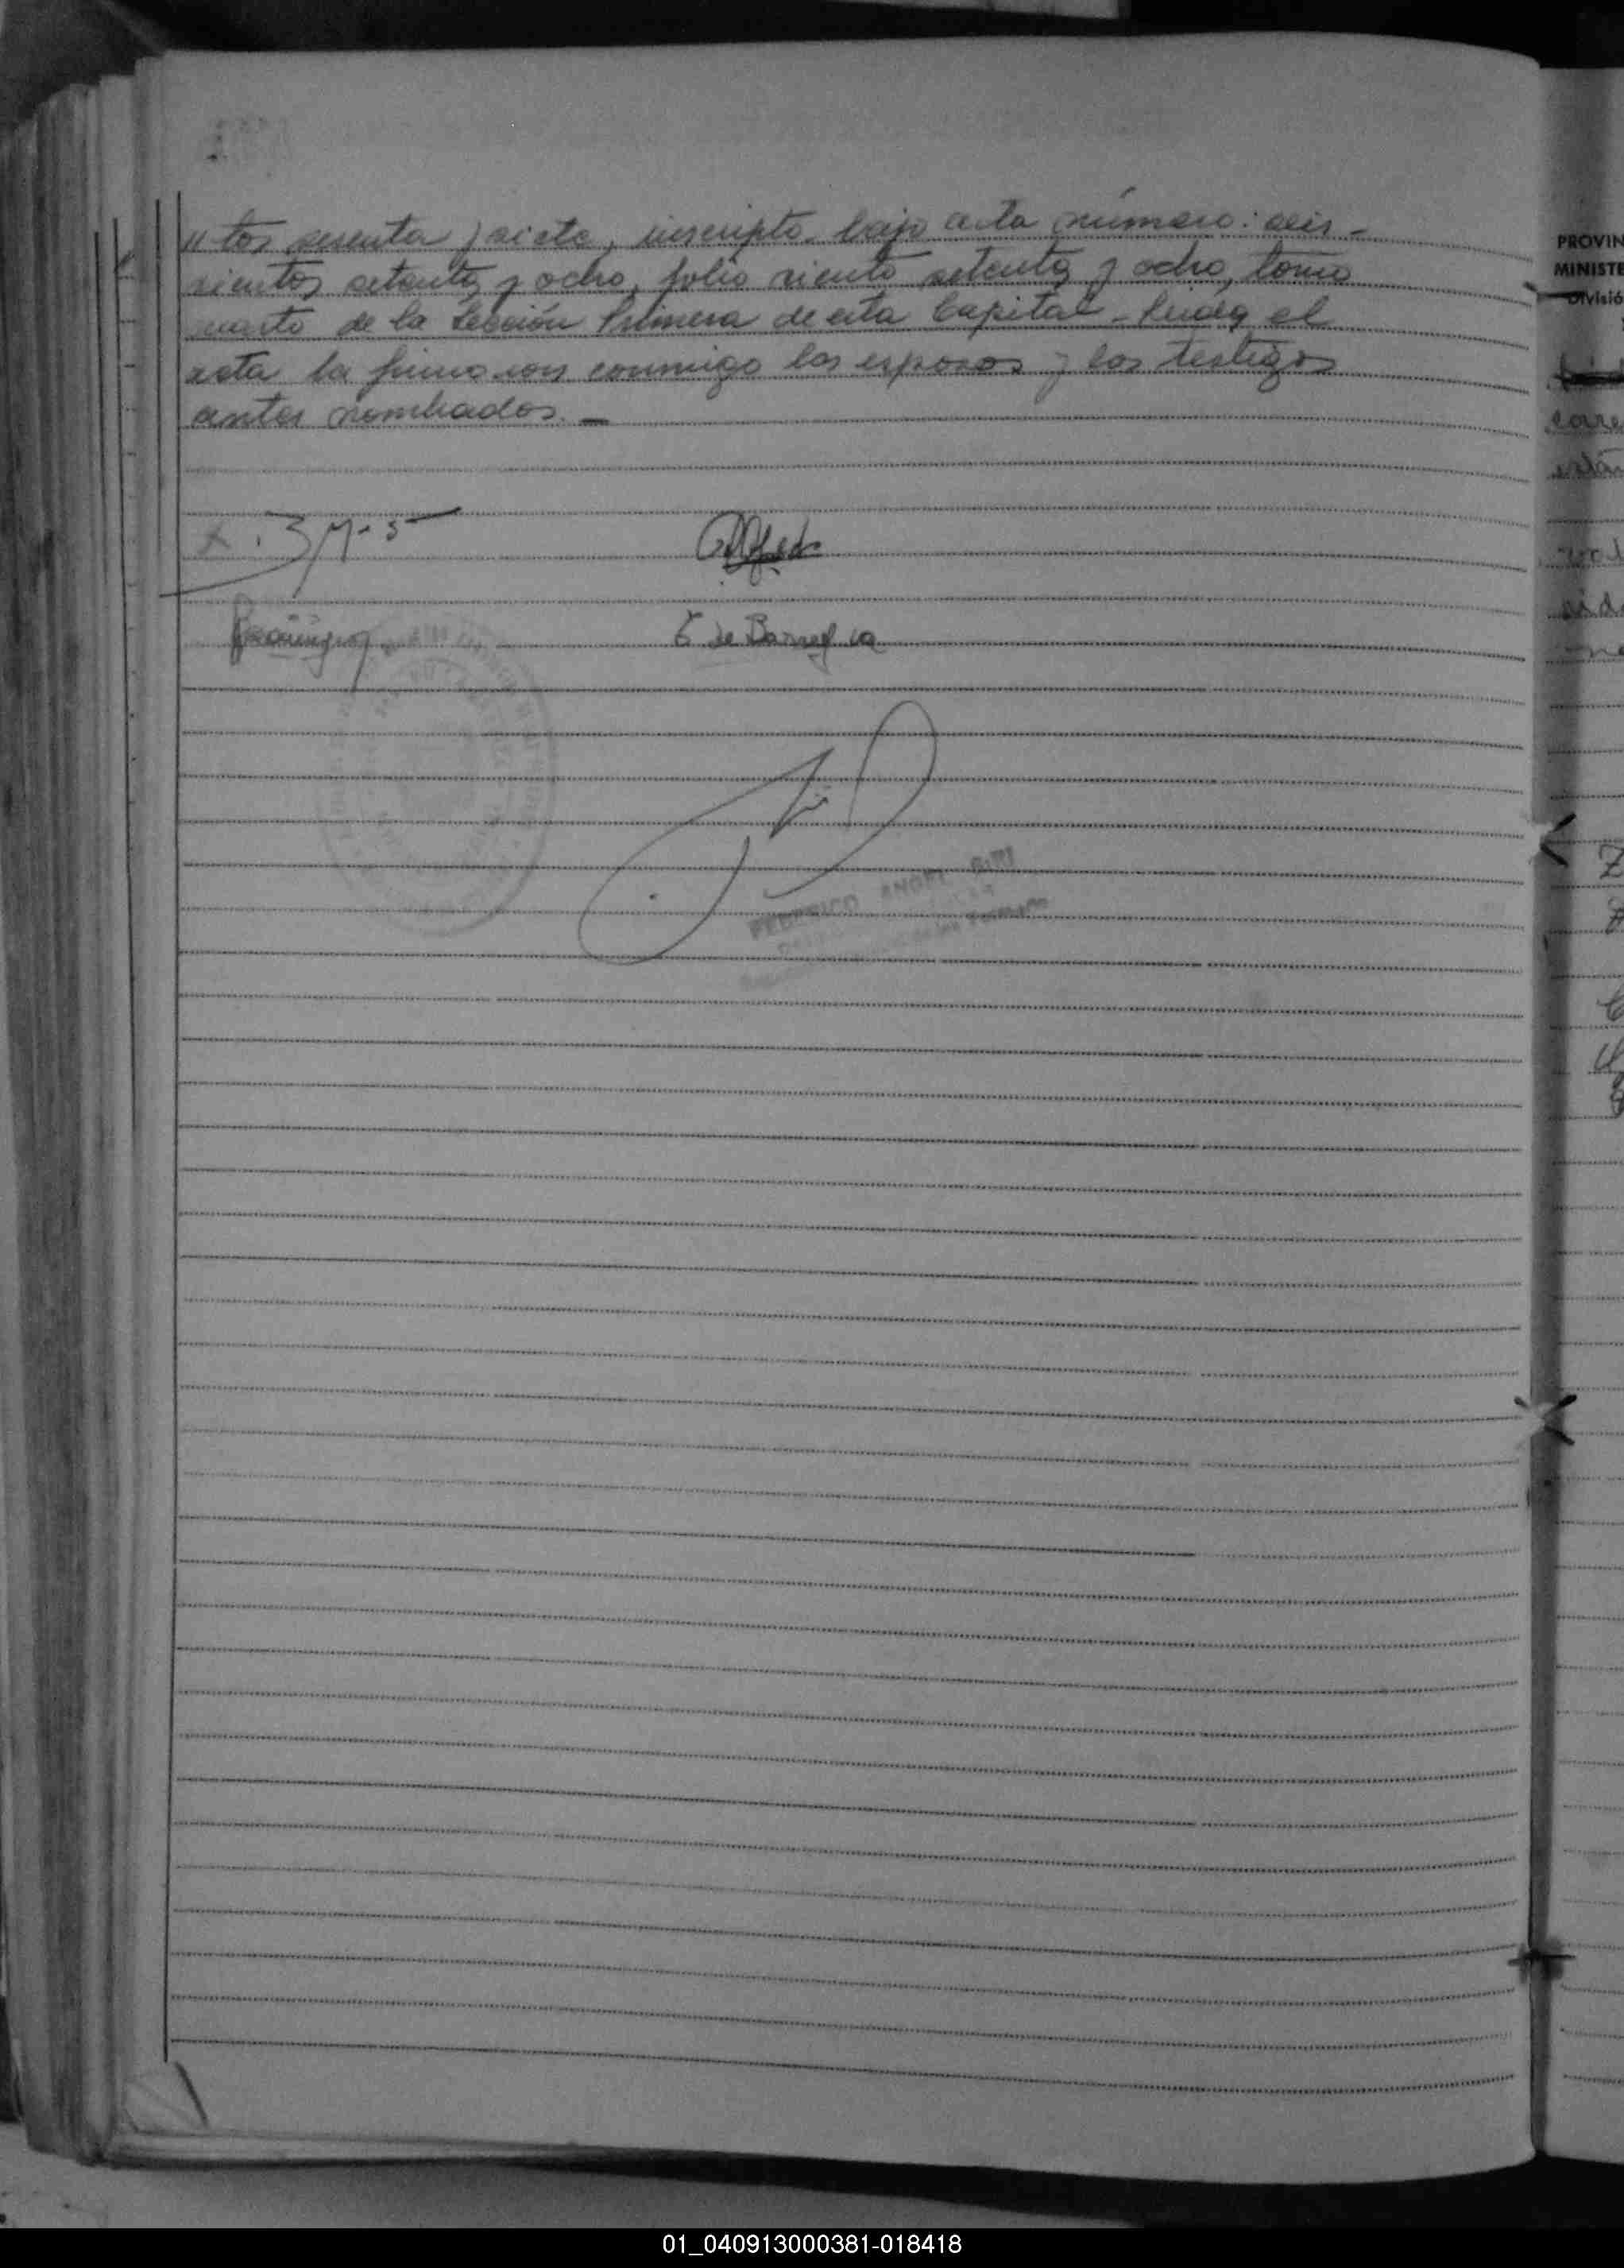 "tos sesenta y siete, inscripto bajo acta número: seis-
cientos setenta y ocho, folio ciento setenta y ocho, tomo
cuarto de la Sección Primera de esta Capital - Leída el
acta la firmaron conmigo los esposos y los testigos
antes nombrados. —
E de Barre
FEDERICO ANGEL
PROVIN
MINISTE
Divisió
care
está
01_040913000381-018418